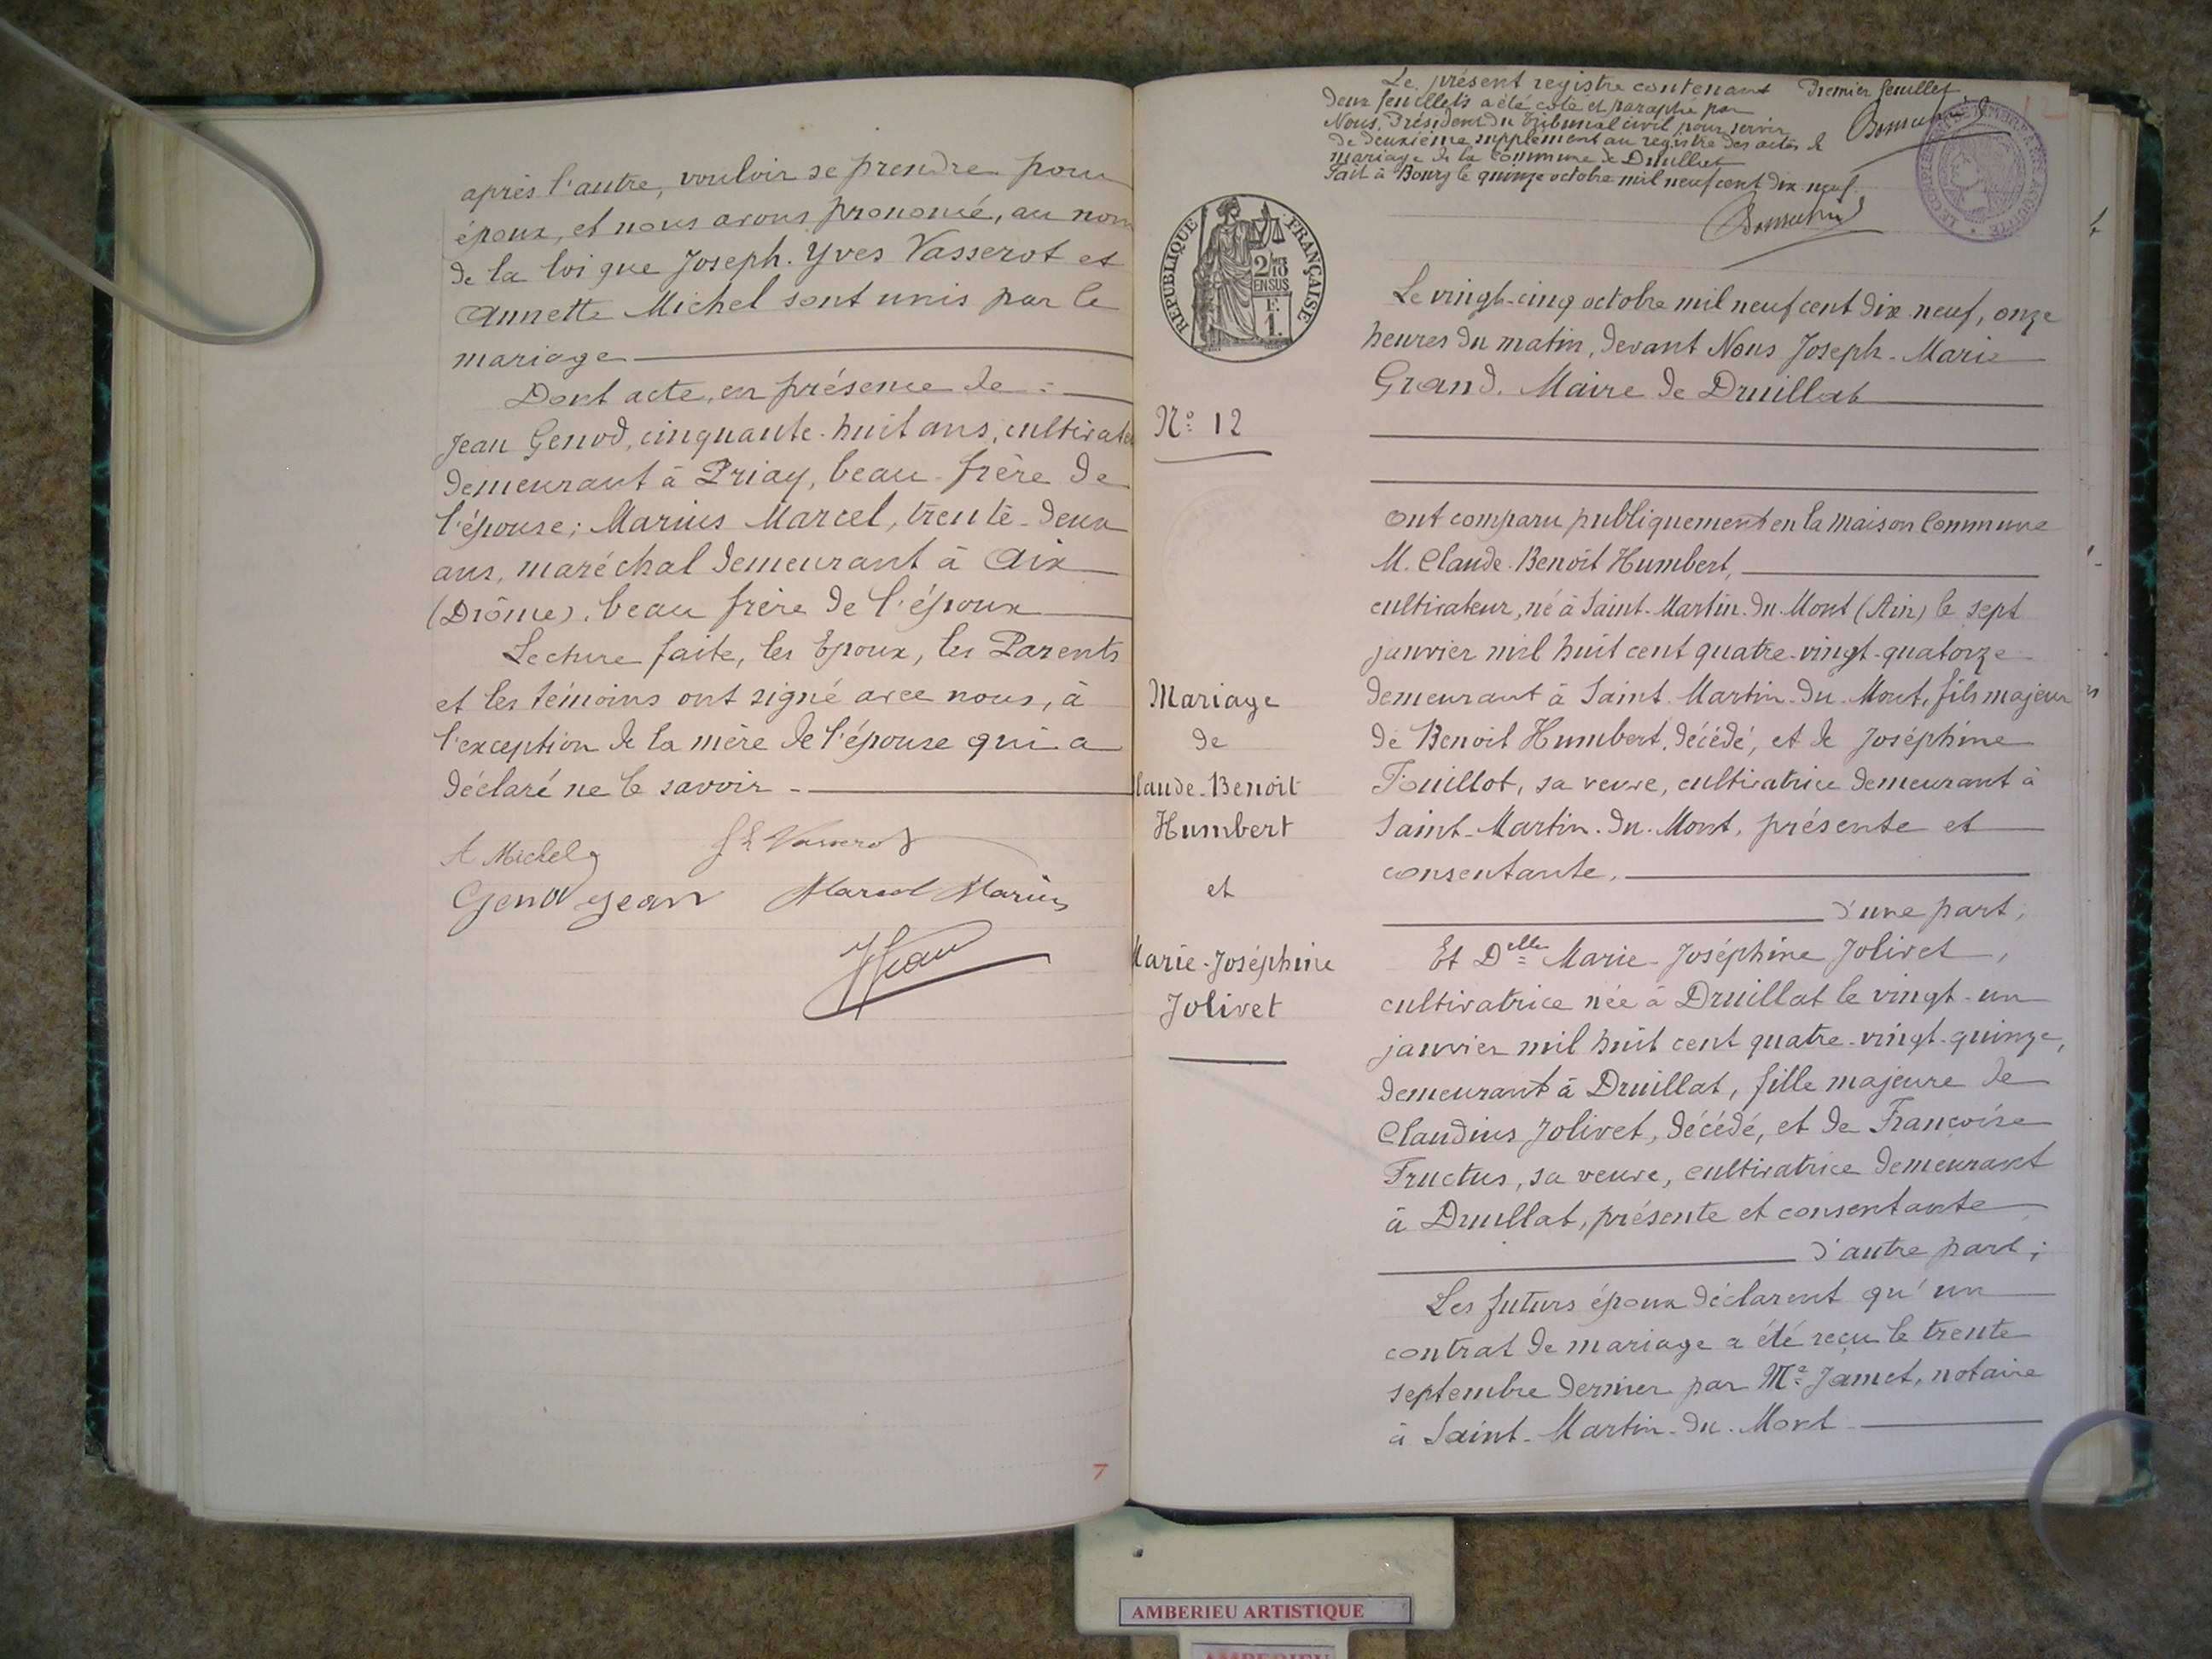 après l'autre, vouloir se prendre pour
époux, et nous avons prononcé, au nom
de la loi que Joseph. Yves Vasserot et
Annette Michel sont unis par le
mariage
Dont acte, en présence de :
Jean Genod, cinquante-huit ans, cultivate
demeurant à Priay, beau-frère de
l'épouse; Marius Marcel, trente-deux
ans, maréchal demeurant à Aix
(Drôme), beau frère de l'époux
Lecture faite, les Epoux, les Parents
et les témoins ont signé avec nous, à
l'exception de la mère de l'épouse qui a
déclaré ne le savoir -
A Michel
Vasserot
Genod Jean
Marcel Marius
7
Le présent registre contenant
deux feuillets a été coté et paraphé par
Nous, Président du Tribunal civil pour servir
de deuxième supplément au registre des actes de
mariage de la commune de Druillat
Fait à Bourg le quinze octobre mil neuf cent dix neuf.
Premier feuillet
REPUBLIQUE FRANÇAISE
2/10 EN SUS
F.
1.
N° 12
Mariage
de
laude-Benoit
Humbert
et
Marie-Joséphine
Jolivet
Le vingt-cinq octobre mil neuf cent dix neuf, onze
heures du matin, devant Nous Joseph-Marie
Grand. Maire de Druillat
ont comparu publiquement en la maison Commune
M. Claude-Benoît Humbert,
cultivateur, né à Saint-Martin-du-Mont (Ain) le sept
janvier mil huit cent quatre-vingt-quatorze
demeurant à Saint-Martin-du-Mont, fils majeur
de Benoit Humbert, décédé, et de Joséphine
Fouillot, sa veuve, cultivatrice demeurant à
Saint-Martin-du-Mont, présente et
consentante,
d'une part;
Et Delle Marie-Joséphine Jolivet,
cultivatrice née à Druillat le vingt-un
janvier mil huit cent quatre-vingt-quinze,
demeurant à Druillat, fille majeure de
Claudius Jolivet, décédé, et de Françoise
Fructus, sa veuve, cultivatrice demeurant
à Druillat, présente et consentante
d'autre part;
Les futurs époux déclarent qu'un
contrat de mariage a été reçu le trente
septembre dernier par Me Jamet, notaire
à Saint-Martin-du-Mont
AMBERIEU ARTISTIQUE
AMBERIEU